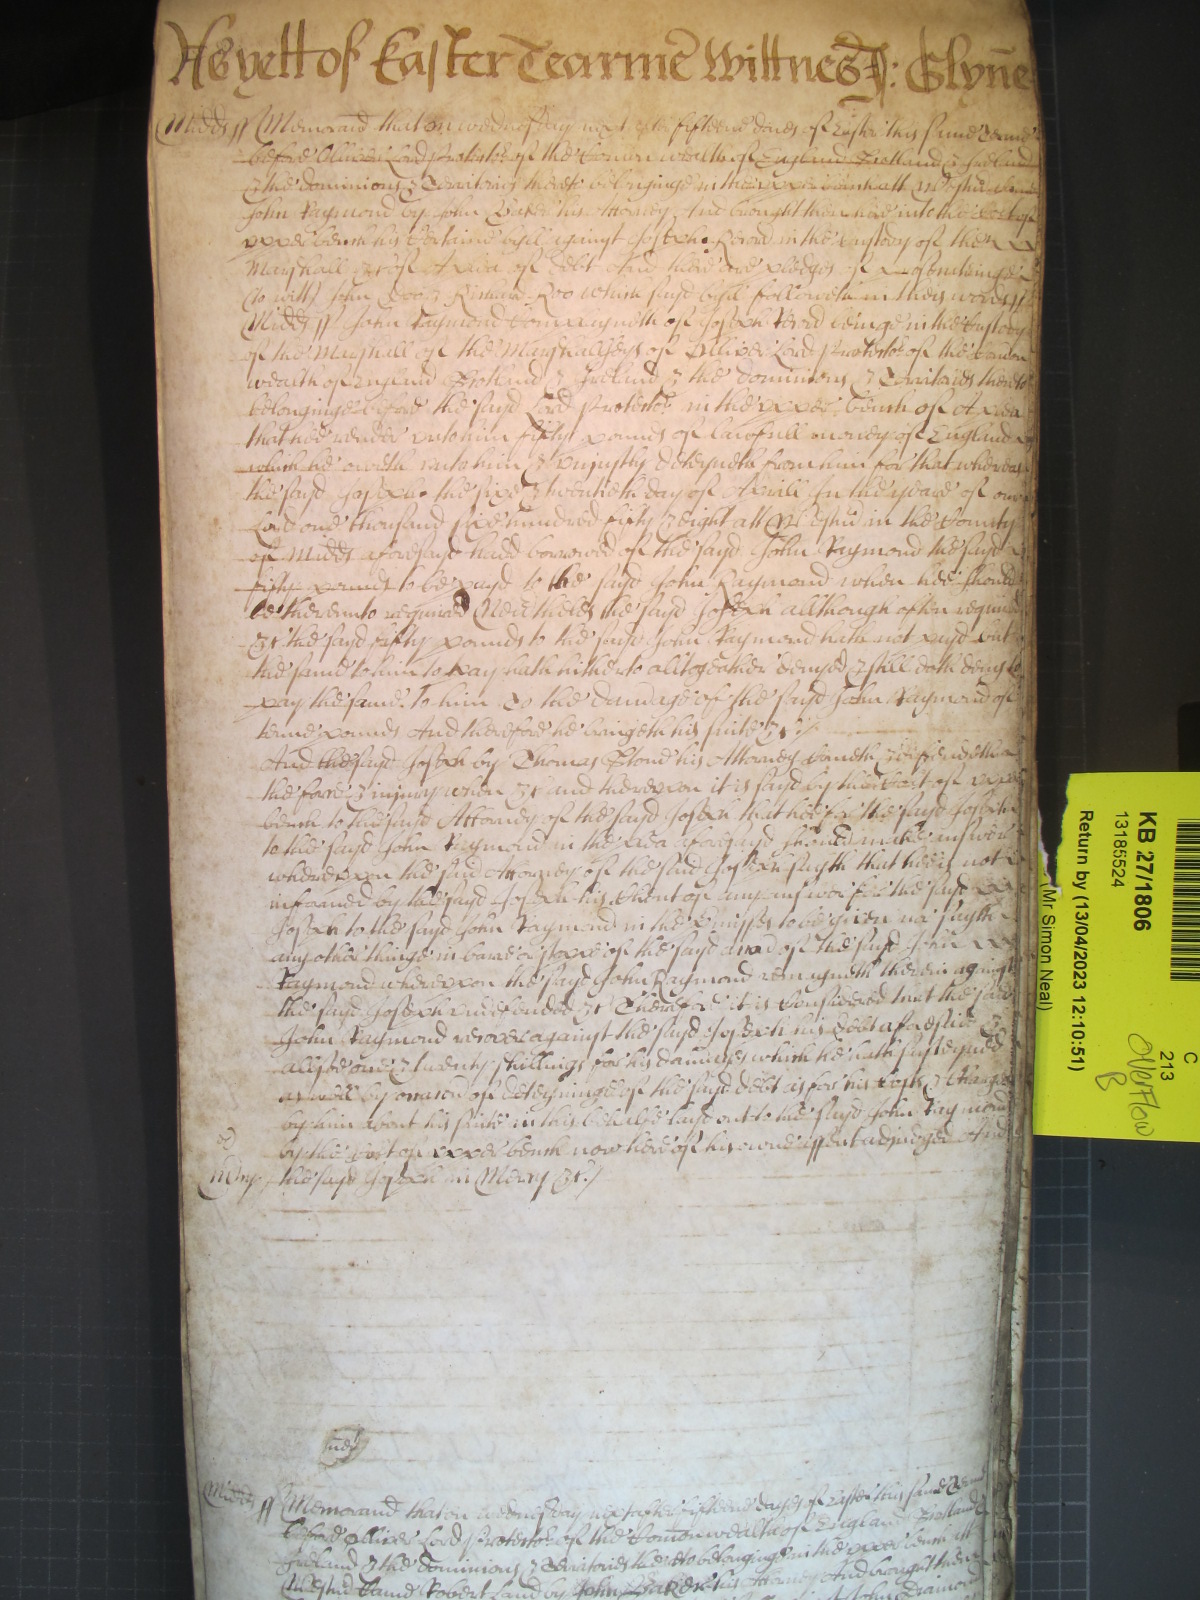 As yett of Easter Tearme Wittnes J: Glyne
Midds ss Memorand that on wednesday next after fifteene dayes of Easter this same Terme
before Oliver Lord Protector of the Comon wealth of England Scotland & Ireland
& the dominions & Territories thereto belonginge in the upper bench att Westm came
John Raymond by John Baker his Attorney And brought then here into the Cort of
upper bench his certaine bill against Joseph in the custody of the
Marshall &c of A plea of debt And there are pledges of prosecutinge
(to witt) John Doo & Richard Roo which sayd bill followeth in theis words ss
Midds ss John Raymond complayneth of Joseph beinge in the Custody
of the Marshall of the Marshallseys of Olliver Lord Protector of the Comon
wealth of England Scotland & Ireland & the dominions & Territories thereto
belonginge before the sayd Lord Protector in the upper bench of A plea
that hee render unto him fifty pounds of lawfull money of England
which he oweth unto him & unjustly deteyneth from him for that whereas
the sayd Joseph the sixe & twentieth day of Aprill In the yeare of our
Lord one thousand sixe hundred fifty & eight att Westm in the County
of Midds aforesayd hadd borrowed of the sayd John Raymond the sayd
fifty pounds to be payd to the sayd John Raymond when hee should
be thereunto required Neverthelesse the sayd Joseph allthough often required
&c the sayd fifty pounds to the sayd John Raymond hath not payd but
the same to him to pay hath hitherto alltogeather denyed & still doth deny to
pay the same to him To the damage of the sayd John Raymond of
tenne pounds And therefore he bringeth his suite &c
And the sayd Joseph by Thomas Stone his Attorney cometh & defendeth
the force & injury when &c and thereupon it is sayd by the Cort of upper
bench to the sayd Attorney of the sayd Joseph that hee for the sayd Joseph
to the sayd John Raymond in the plea aforesayd should make answere
whereupon the said Attorney of the said Joseph sayth that hee is not
informed by the sayd Joseph his Client of any answer for the sayd
Joseph to the sayd John Raymond in the premisses to be given nor sayth
any other thinge in barr or stopp of the sayd accion of the sayd John
Raymond whereupon the sayd John Raymond remayneth therein against
the sayd Joseph undefended &c Therefore it is considered that the said
John Raymond recover against the sayd Joseph his debt aforesaid
allsoe one & twenty shillings for his damages which he hath susteyned
as well by occasion of deteyninge of the sayd debt as for his Costs & Charges
by him about his suite in this behalfe layd out to the sayd John Raymond
by the Cort of upper bench now here of his owne assent adjudged And
Mcy the sayd Joseph in Mercy &c
Midds ss Memorand that on wednesday next after fifteene dayes of Easter this same Terme
before Olliver Lord Protector of the Comonwealth of England Scotland
Ireland & the dominions & Territories thereto belonginge in the upper bench att
Westm came Robert Land by John Baker his Attorney And brought then
KB 27/1806
13185524
Return by (13/04/2023 12:10:51)
(Mr Simon Neal)
C
213
Overflow
B